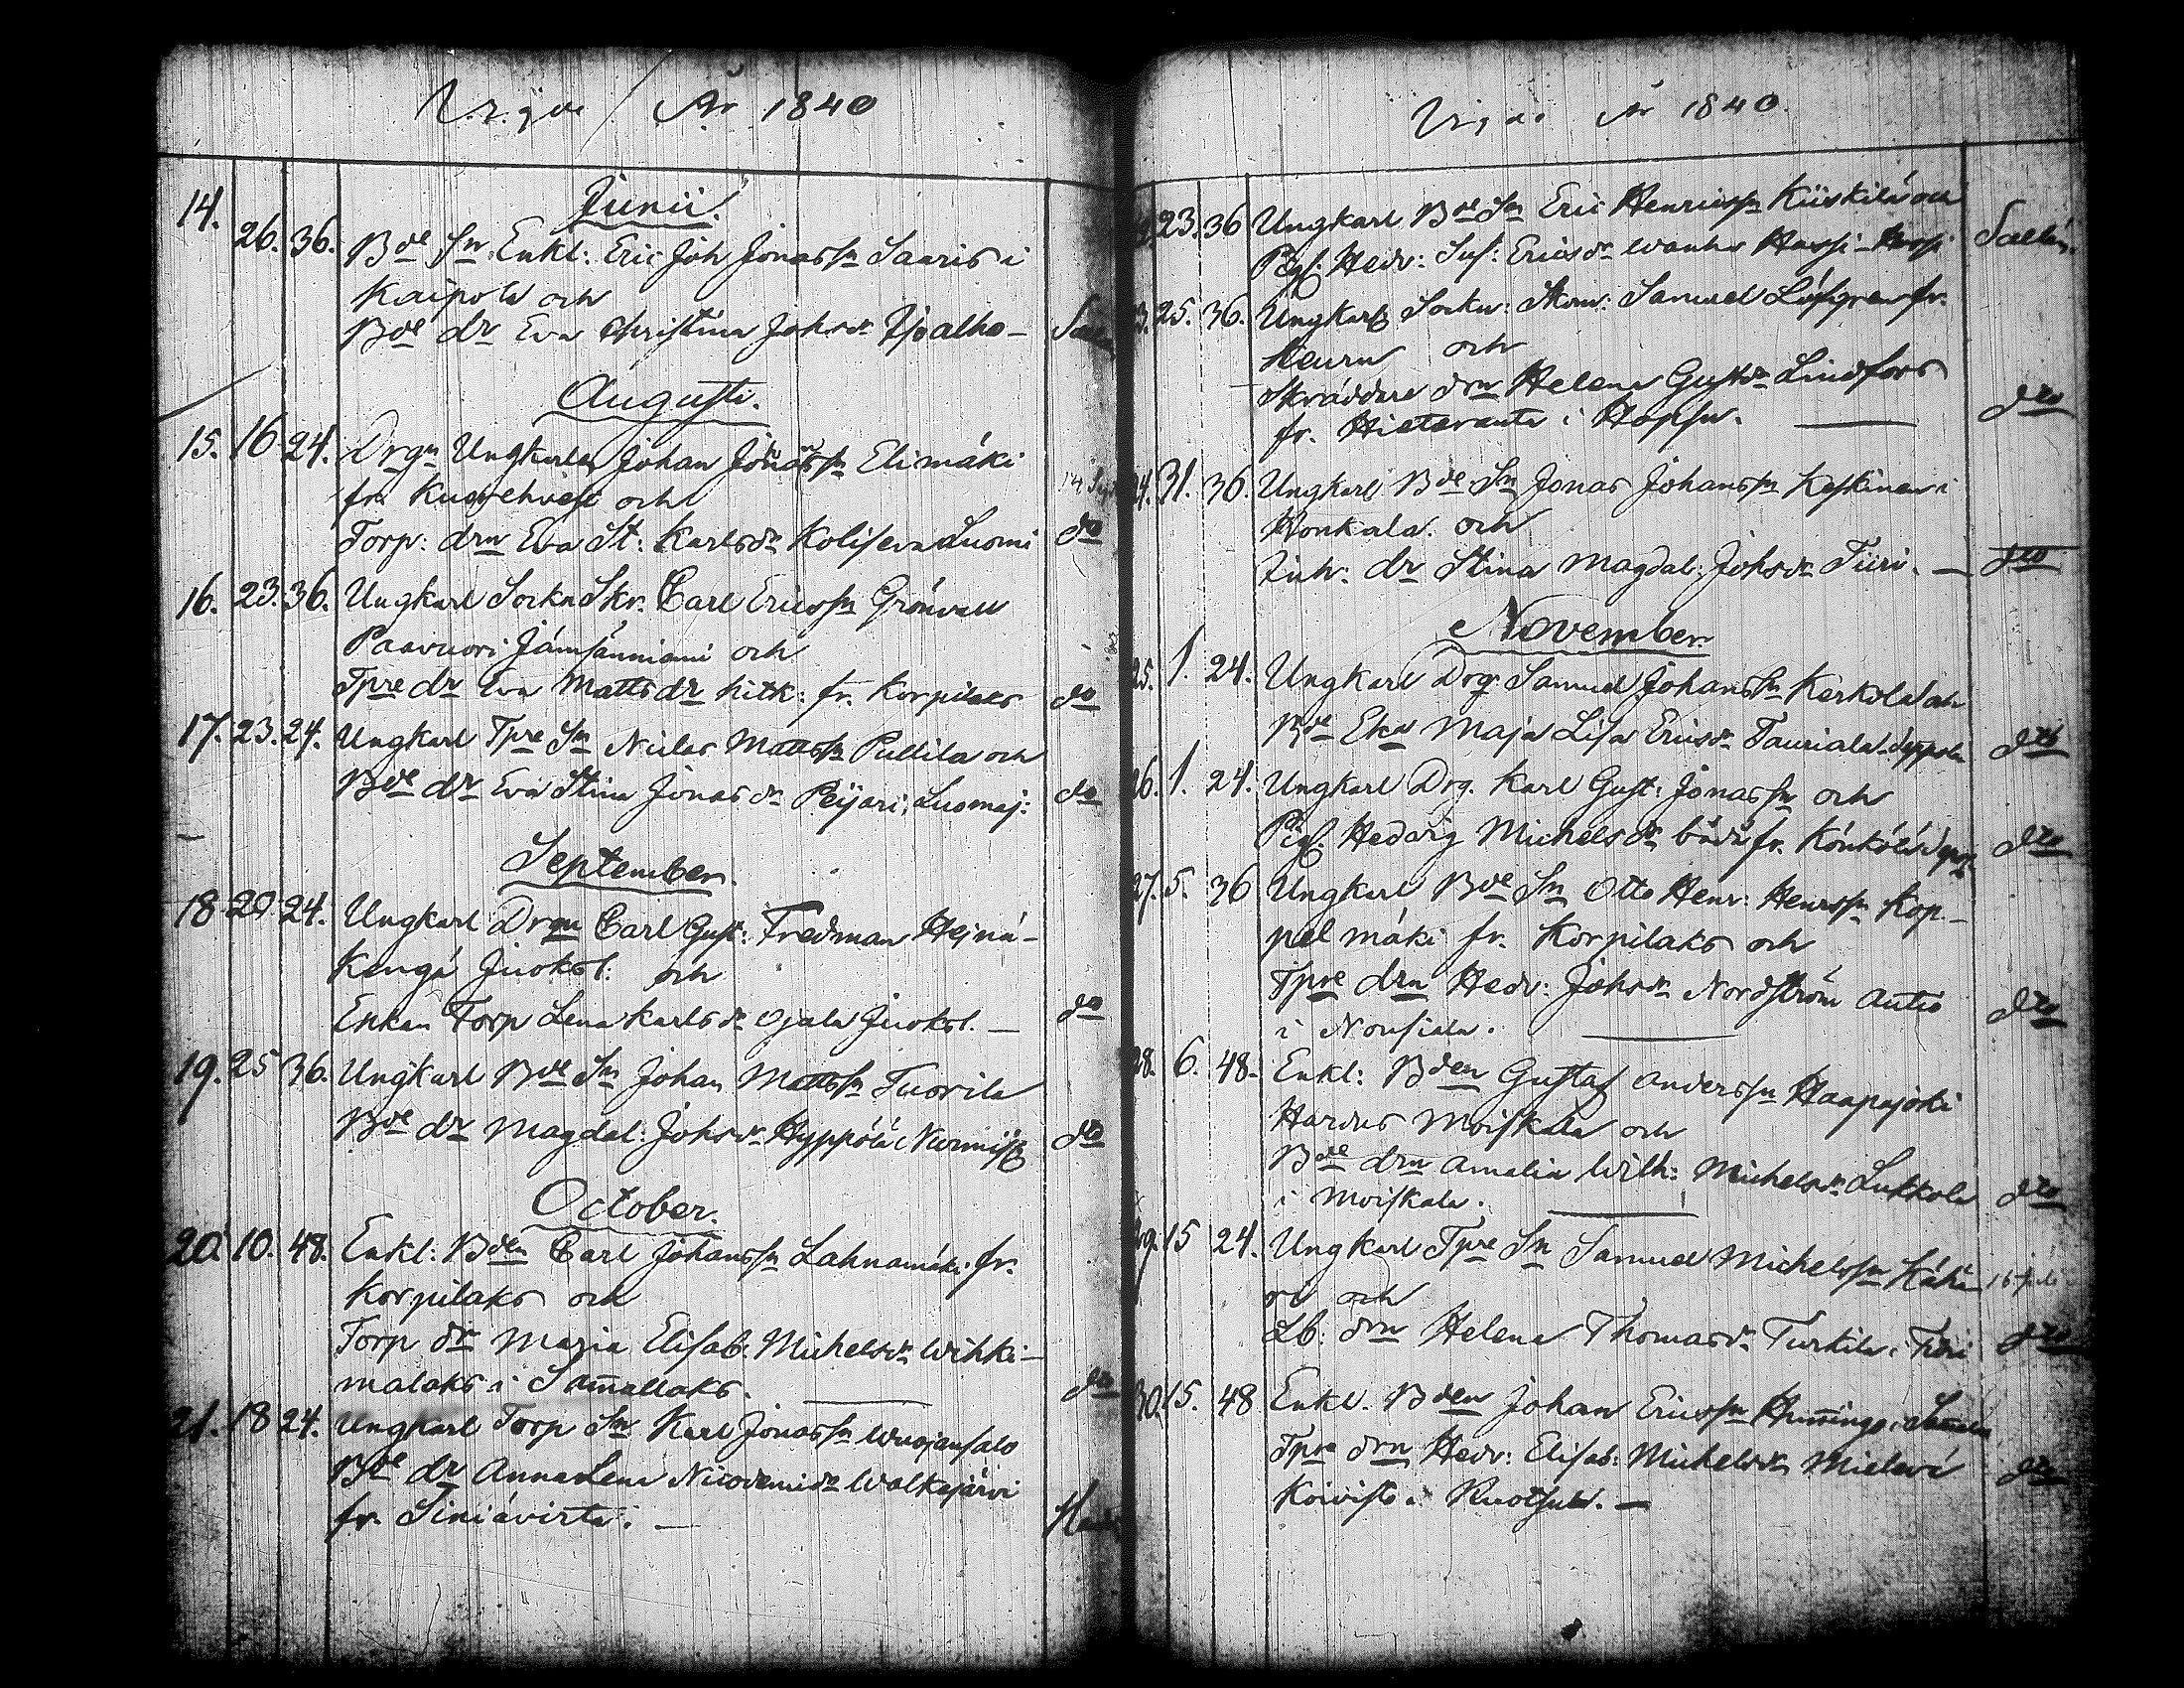 Vigde År 1840
Junii.
14. 26. 36. Bde Sn Enkl: Eric Joh Jonassn Saaris i
Kaipola och
Bde dr Eva Christina Johsdr Ijoalho-
Augusti.
15. 16 24. Drgn Ungkarlen Johan Jonassn Elimäki
fr. och
Torp: drn Eva St: Karlsdr Luomi do
16. 23. 36. Ungkarl Sockn Skr. Carl Ericssn Grönvall
Paavuori Jämsänniemi och
Tpre dr Eva Mattsdr hitk: fr. Korpilaks do
17. 23. 24. Ungkarl Tpre Sn Niclas Mattssn Pullila och
Bde dr Eva Stina Jonasdr Peijari, Luomaj: do
September.
18 20 24. Ungkarl Drgn Carl Gust: Fredman Hejnä-
Kengä Juoksl: och
Enkan Torp Lena Karlsdr Ojala Juoksl. — do
19. 25 36. Ungkarl Bde Sn Johan Mattssn Tuorila
Bde dr Magdal: Johsdr Hyppölä i do
October.
20. 10. 48. Enkl: Bden Carl Johanssn Lahnamäki fr.
Korpilaks och
Torp dr Maria Elisab. Michelsdr Wihki-
malaks i Sam̄allaks. — do
21. 18 24. Ungkarl Torp Sn Karl Jonassn Wuojansalo
Bde dr Anna Lena Nicodemidr Walkejärvi
fr. Siniävirta. —
Vigde År 1840.
23. 36 Ungkarl Bde Sn Eric Henricssn Kiiskilä och
Pigf. Hedv: Sus: Ericsdr Hassi
25. 36. Ungkarl Sockn: Skom: Samuel Löfgren fr.
Keuru och
Skräddare drn Helena Gustdr Lindfors
fr. Hietaranta i Hopsu. — dto
31. 36. Ungkarl Bde Sn Jonas Johanssn Keskinen i
Konkala. och
Inh: dr Stina Magdal: Johsdr Tiiri. — dto
November.
25. 1. 24. Ungkarl Drg. Samuel Johanssn Kerkola och
Bde Eka Maja Lisa Ericsdr Tauriala Seppola dto
26. 1. 24. Ungkarl Drg. Karl Gust: Jonassn och
Pigf. Hedvig Michelsdr båda fr. Könkölä dto
27. 5. 36 Ungkarl Bde Sn Otto Henr: Henrssn Kop-
pelmäki fr. Korpilaks och
Tpre drn Hedv: Johsdr Nordström Autio
i Nousiala. — dto
28. 6. 48. Enkl: Bden Gustaf Anderssn Haapajoki
Hardus Moiskala och
Bde drn Amalia Wilh: Michelsdr Lukkola
i Moiskala. — dto
29. 15 24. Ungkarl Tpre Sn Samuel Michelssn Kähä-
rö och
Lb: drn Helena Thomasdr Turkila i Tiiri dto
30. 15. 48 Enkl. Bden Johan Ericssn Hum̄inge
Tpre drn Hedv: Elisab: Michelsdr
Koivisto i Ruotsula. — dto